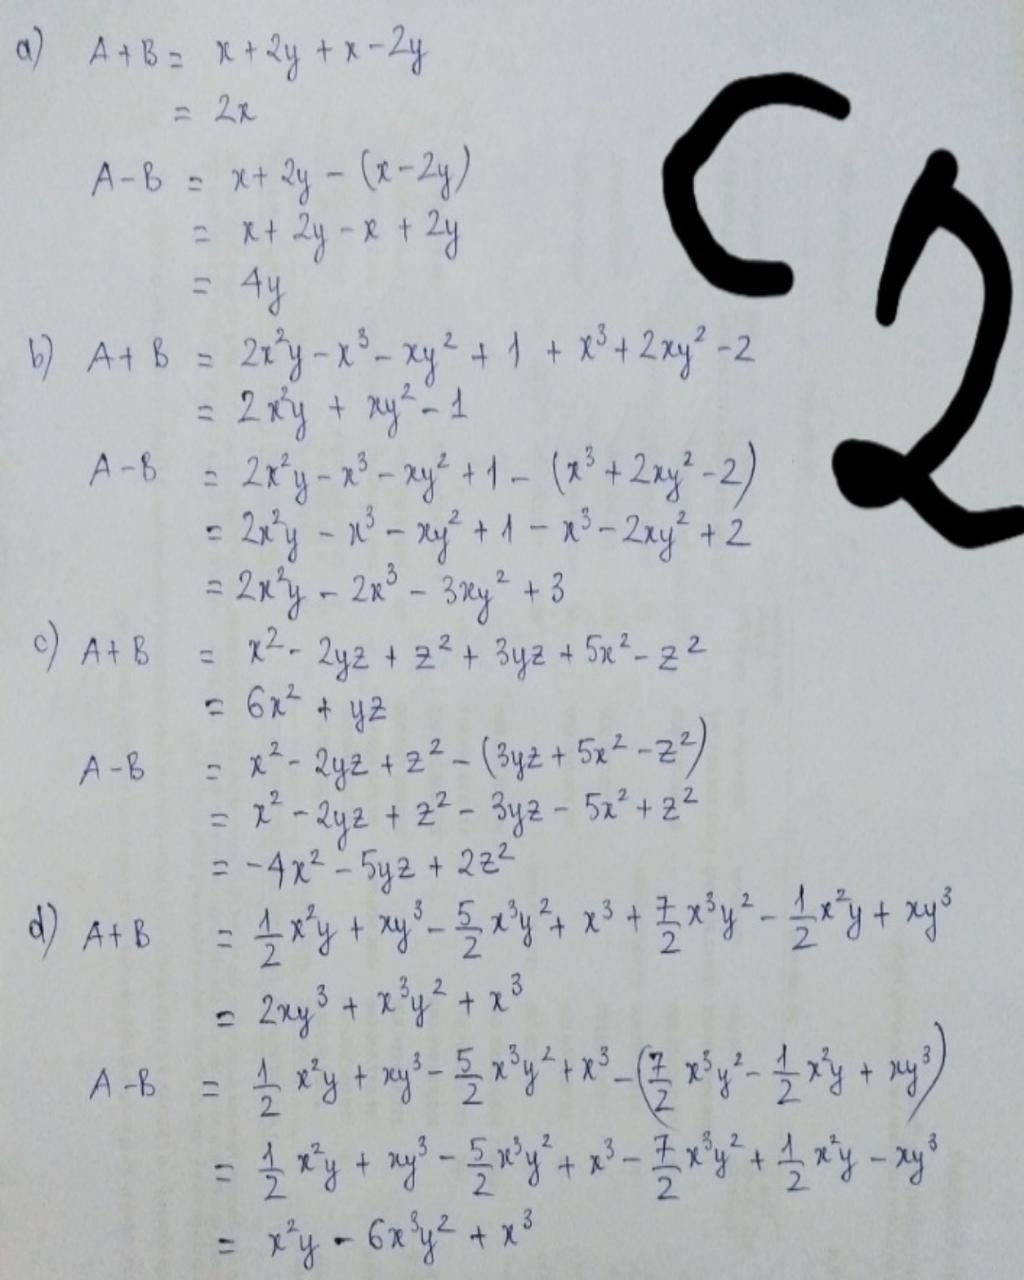 a) A+B = x + 2y + x - 2y
= 2x
A-B = x + 2y - (x - 2y)
= x + 2y - x + 2y
= 4y
b) A+B = 2x²y - x³ - xy² + 1 + x³ + 2xy² - 2
= 2x²y + xy² - 1
A-B = 2x²y - x³ - xy² + 1 - (x³ + 2xy² - 2)
= 2x²y - x³ - xy² + 1 - x³ - 2xy² + 2
= 2x²y - 2x³ - 3xy² + 3
c) A+B = x² - 2yz + z² + 3yz + 5x² - z²
= 6x² + yz
A-B = x² - 2yz + z² - (3yz + 5x² - z²)
= x² - 2yz + z² - 3yz - 5x² + z²
= -4x² - 5yz + 2z²
d) A+B = 1/2 x²y + xy³ - 5/2 x³y² + x³ + 7/2 x³y² - 1/2 x²y + xy³
= 2xy³ + x³y² + x³
A-B = 1/2 x²y + xy³ - 5/2 x³y² + x³ - (7/2 x³y² - 1/2 x²y + xy³)
= 1/2 x²y + xy³ - 5/2 x³y² + x³ - 7/2 x³y² + 1/2 x²y - xy³
= x²y - 6x³y² + x³
C2